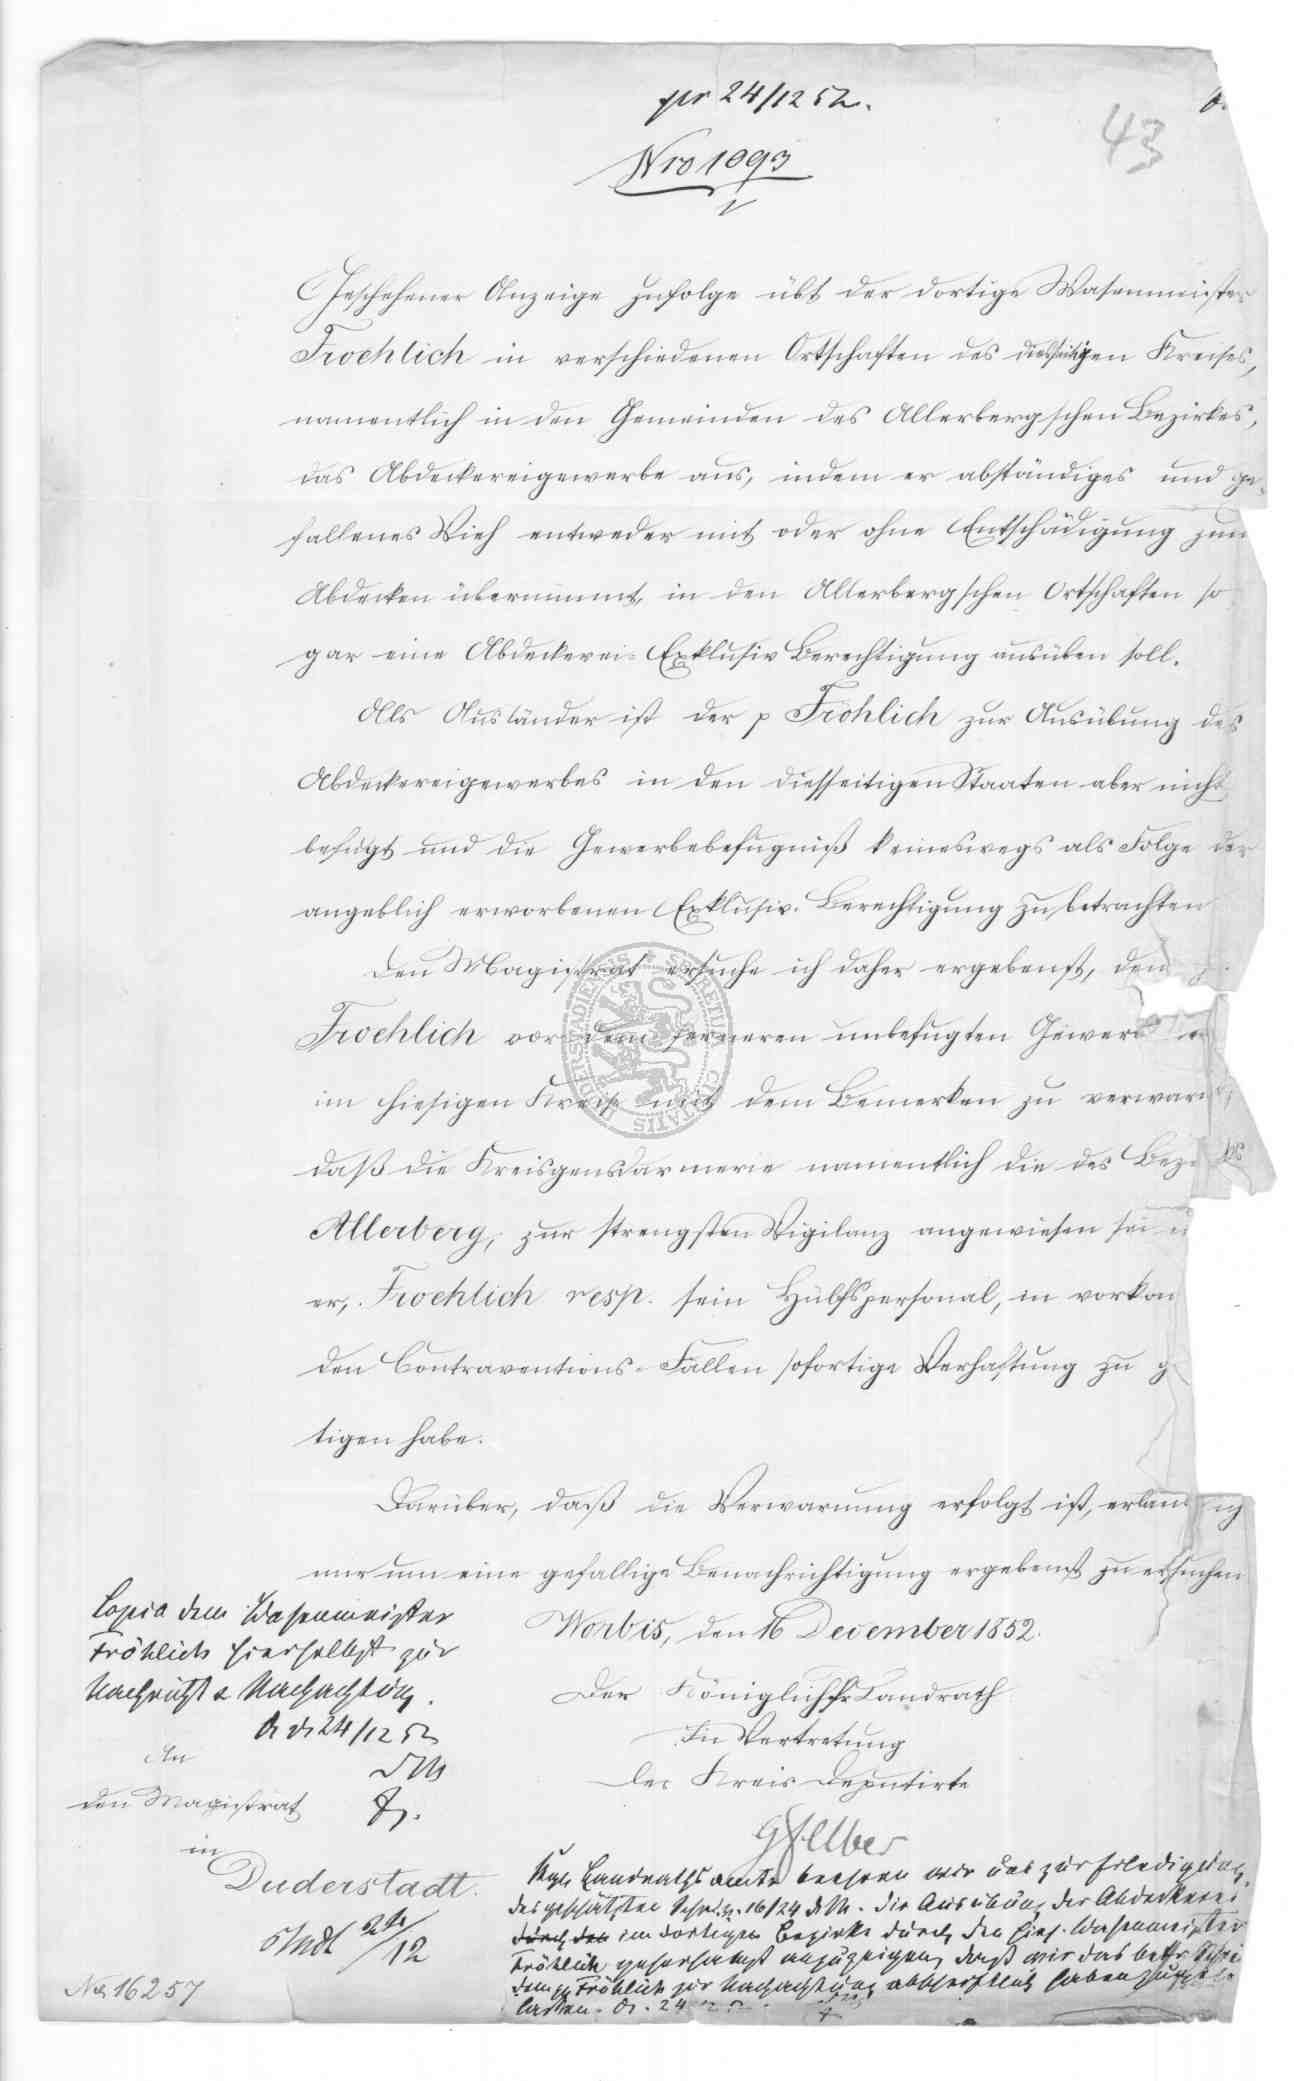 pr 24/12 52.
43
Nro 1093
Geschehener Anzeige zufolge übt der dortige Wasenmeister
Froehlich in verschiedenen Ortschaften des diesseitigen Kreises,
namentlich in den Gemeinden des Allerbergschen Bezirkes,
das Abdeckereigewerbe aus, indem er abständiges und ge-
fallenes Vieh entweder mit oder ohne Entschädigung zum
Abdecken übernimmt, in den Allerbergschen Ortschaften so
gar eine Abdeckerei-Exklusiv Berechtigung ausüben soll.
Als Ausländer ist der p Fröhlich zur Ausübung des
Abdeckereigewerbes in den diesseitigen Staaten aber nicht
befugt und die Gewerbebefugniß keineswegs als Folge der
angeblich erworbenen Exklusiv-Berechtigung zu betrachten
Den Magistrat ersuche ich daher ergebenst, den
Froehlich vor dem ferneren unbefugten
im hiesigen Kreise mit dem Bemerken zu verwarn
daß die Kreisgensdarmerie namentlich die des
Allerberg, zur strengsten Vigilanz angewiesen sei
er, Froehlich resp. sein Hülfspersonal, in vorkom
den Contraventions-Fällen sofortige Verhaftung zu g
tigen habe.
Darüber, daß die Verwarnung erfolgt ist,
mir um eine gefällige Benachrichtigung ergebenst zu ersuchen
Worbis, den 16 December 1852.
Der Königliche Landrath
In Vertretung
Der Kreis Deputirte
Copia dem Wasenmeister
Fröhlich hierselbst zur
Nachricht & Nachachtung.
D. d. 24/12 52
DM
An
den Magistrat
in
Duderstadt.
Kgl. Landrathsamte beehren wir uns zur Erledigung
des geschätzten Schr. v. 16/24 d. M. die Ausübung der Abdeckerei
durch den im dortigen Bezirke durch den hies. Wasenmeister
Fröhlich gehorsamst anzuzeigen, daß wir das betr. Schr
dem p Fröhlich zur Nachachtung abschriftlich haben
lassen. D. 24
12
No 16257
SECRETUM CIVITATIS DUDERSTADIENSIS